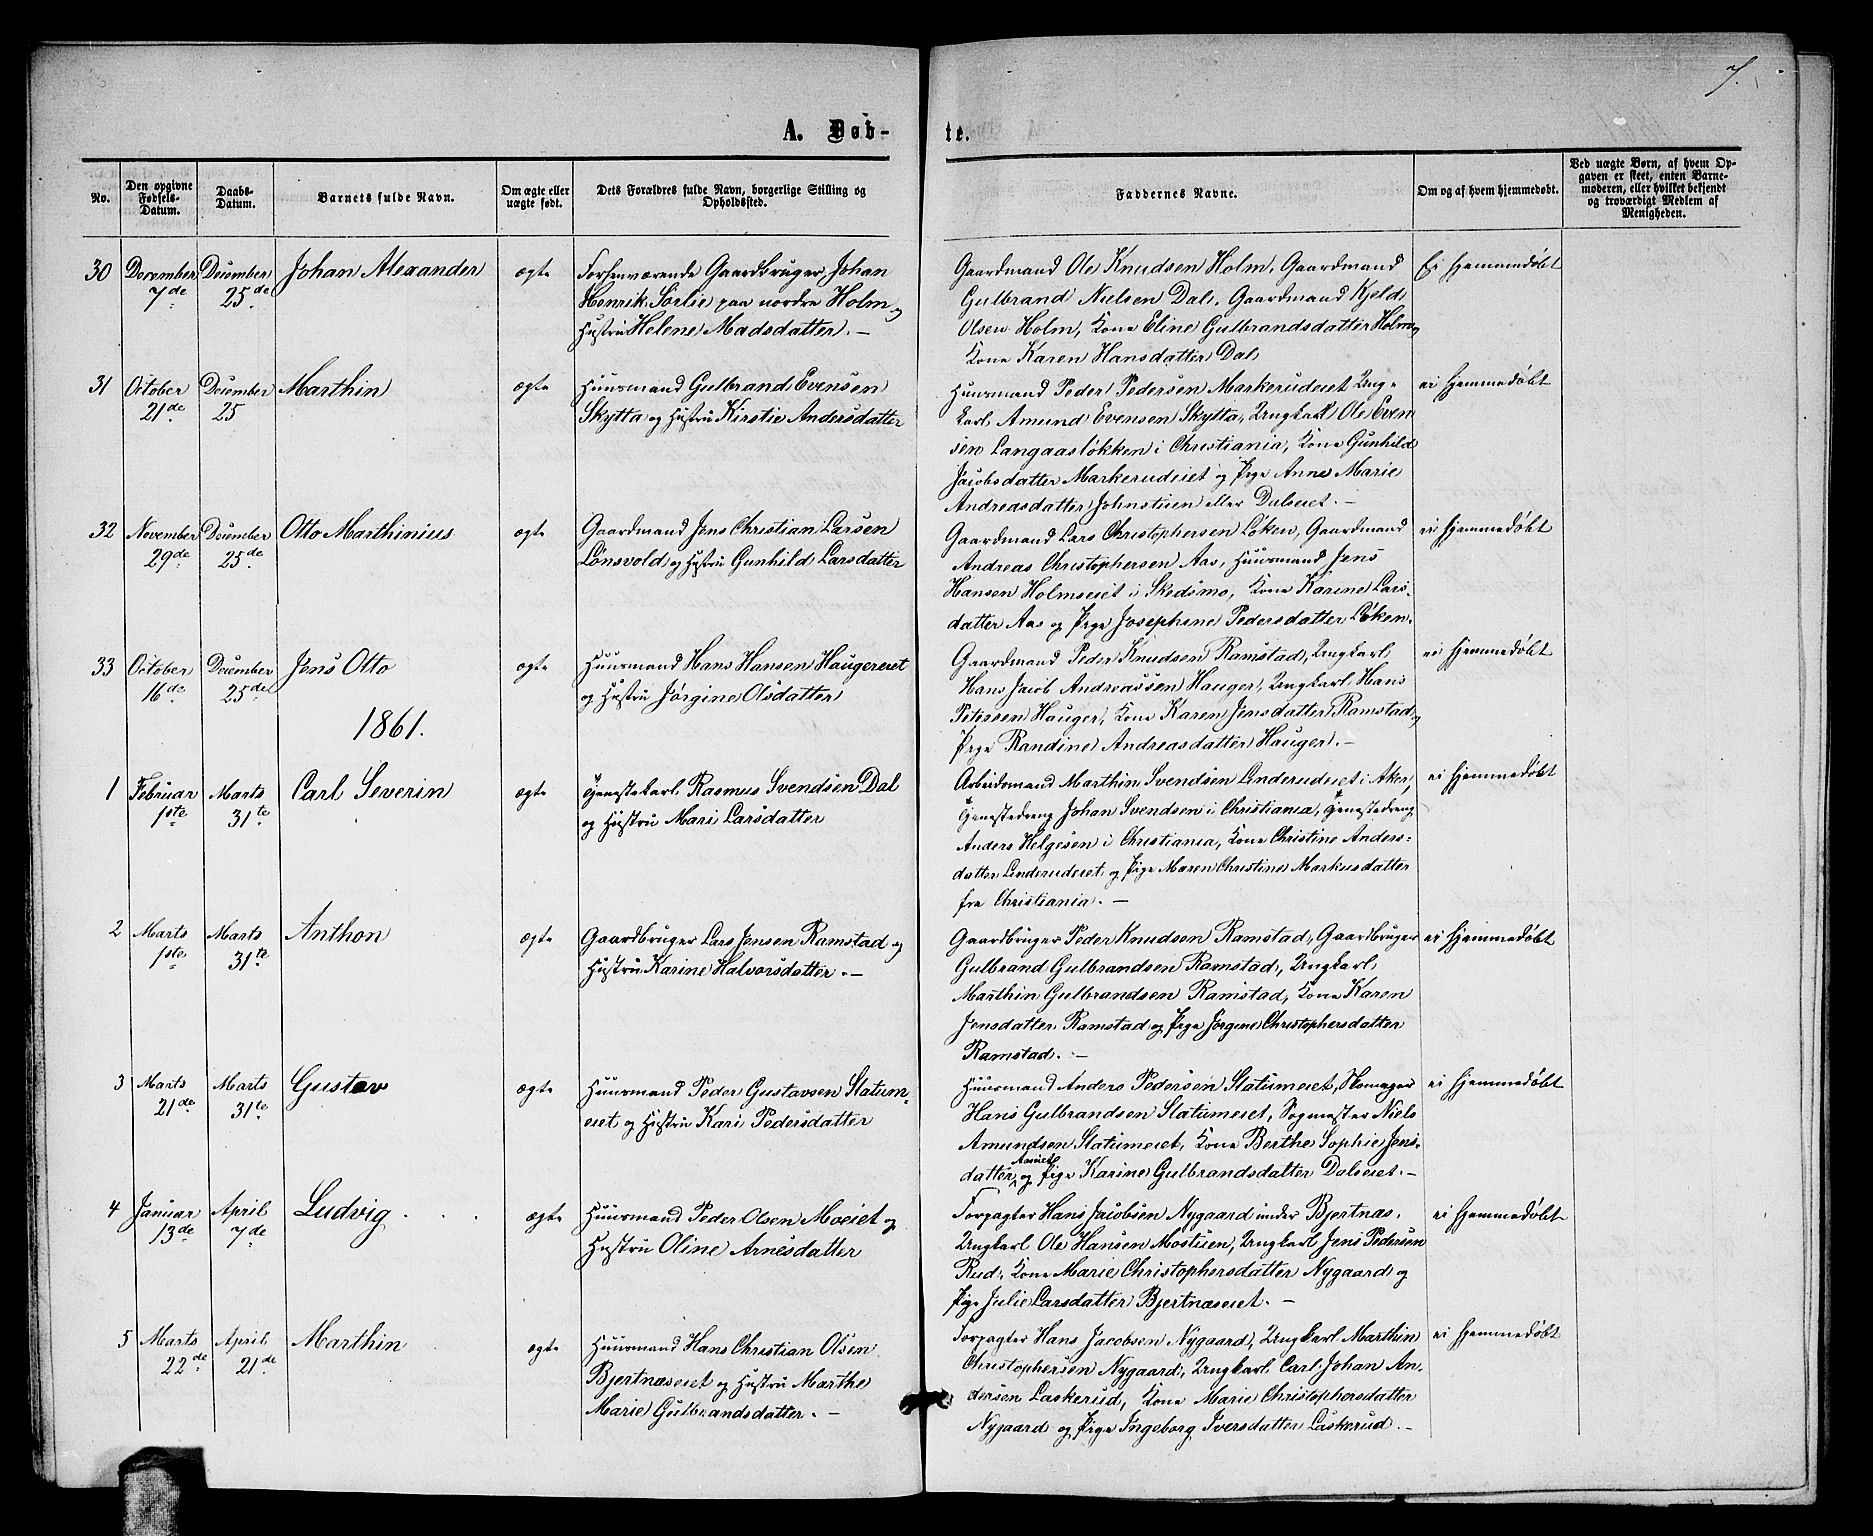 7.
A. Døb-
te.
No.
Den opgivne Fødsels-Datum.
Daabs-Datum.
Barnets fulde Navn.
Om ægte eller uægte født.
Dets Forældres fulde Navn, borgerlige Stilling og Opholdssted.
Faddernes Navne.
Om og af hvem hjemmedøbt.
Ved uægte Børn, af hvem Opgaven er skeet, enten Barnemoderen, eller hvilket bekjendt og troværdigt Medlem af Menigheden.
30 December 7de December 25de Johan Alexander ægte
Forhenværende Gaardbruger Johan
Henrik Sørlie paa nordre Holm og
Hustru Helene Madsdatter. —
Gaardmand Ole Knudsen Holm, Gaardmand
Gulbrand Nielsen Dal, Gaardmand Kjeld
Olsen Holm, Kone Eline Gulbrandsdatter Holm og
Kone Karen Hansdatter Dal
Ei hjemmedøbt
31 October 21de December 25 Marthin ægte
Huusmand Gulbrand Evensen
Skytta og Hustru Kirstie Andersdatter
Huusmand Peder Pedersen Markerudeiet Ung-
karl Amund Evensen Skytta, Ungkarl Ole Even
sen Langaasløkken i Christiania, Kone Gunhild
Jacobsdatter Markerudeiet og Pige Anne Marie
Andreasdatter Johnstuen eller Dalseiet. —
ei hjemmedøbt
32 November 29de December 25de Otto Marthinius ægte
Gaardmand Jens Christian Larsen
Lønsvold og Hustru Gunhild Larsdatter
Gaardmand Lars Christophersen Løken, Gaardmand
Andreas Christophersen Aas, Huusmand Jens
Hansen Holmseiet i Skedsmo, Kone Karine Lars-
datter Aas og Pige Josephine Pedersdatter Løken.
ei hjemmedøbt
33 October 16de December 25de Jens Otto ægte
Huusmand Hans Hansen Haugereiet
og Hustru Jørgine Olsdatter
Gaardmand Peder Knudsen Ramstad, Ungkarl
Hans Jacob Andreassen Hauger, Ungkarl Hans
Petersen Hauger, Kone Karen Jensdatter Ramstad og
Pige Randine Andreasdatter Hauger. —
ei hjemmedøbt
1861.
1 Februar 1ste Marts 31te Carl Severin ægte
Tjenestekarl Rasmus Svendsen Dal
og Hustru Mari Larsdatter
Arbeidsmand Marthin Svendsen Linderudeiet i Aker,
Tjenestedreng Johan Svendsen i Christiania, Tjenestedreng
Anders Helgesen i Christiania, Kone Christine Anders-
datter Linderudeiet og Pige Maren Christine Markusdatter
fra Christiania. —
ei hjemmedøbt
2 Marts 1ste Marts 31te Anthon ægte
Gaardbruger Lars Jensen Ramstad og
Hustru Karine Halvorsdatter. —
Gaardbruger Peder Knudsen Ramstad, Gaardbruger
Gulbrand Gulbrandsen Ramstad, Ungkarl
Marthin Gulbrandsen Ramstad, Kone Karen
Jensdatter Ramstad og Pige Jørgine Christophersdatter
Ramstad. —
ei hjemmedøbt
3 Marts 21de Marts 31te Gustav ægte
Huusmand Peder Gustavsen Slatum-
eiet og Hustru Kari Pedersdatter
Huusmand Anders Pedersen Slatumeiet, Skomager
Hans Gulbrandsen Slatumeiet, Sogmester Niels
Amundsen Slatumeiet, Kone Berthe Sophie Jens-
datter Aaseiet og Pige Karine Gulbrandsdatter Dalseiet. —
ei hjemmedøbt
4 Januar 13de April 7de Ludvig ægte
Huusmand Peder Olsen Moeiet og
Hustru Oline Arnesdatter
Forpagter Hans Jacobsen Nygaard under Bjertnæs,
Ungkarl Ole Hansen Mostuen, Ungkarl Jens Pedersen
Rud, Kone Marie Christophersdatter Nygaard og
Pige Julie Larsdatter Bjertnæseiet. —
ei hjemmedøbt
5 Marts 22de April 21de Marthin ægte
Huusmand Hans Christian Olsen
Bjertnæseiet og Hustru Marthe
Marie Gulbrandsdatter. —
Forpagter Hans Jacobsen Nygaard, Ungkarl Marthin
Christophersen Nygaard, Ungkarl Carl Johan An-
dersen Laskerud, Kone Marie Christophersdatter
Nygaard og Pige Ingeborg Iversdatter Laskerud. —
ei hjemmedøbt